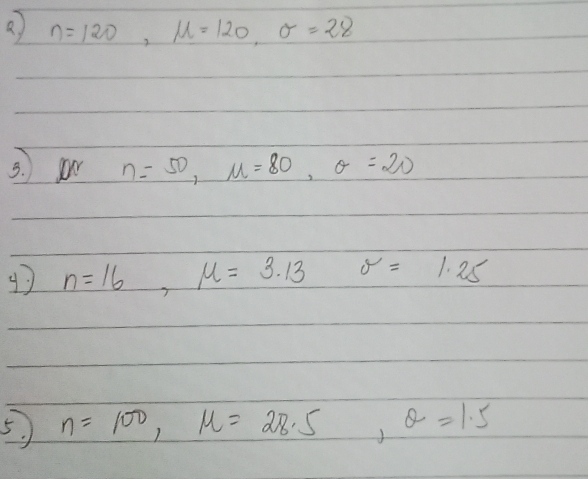 2) n=120 , μ=120, σ=28
3.) n=50, μ=80, σ=20
4) n=16 , μ= 3.13 σ= 1.25
5.) n= 100, μ= 28.5 , σ=1.5